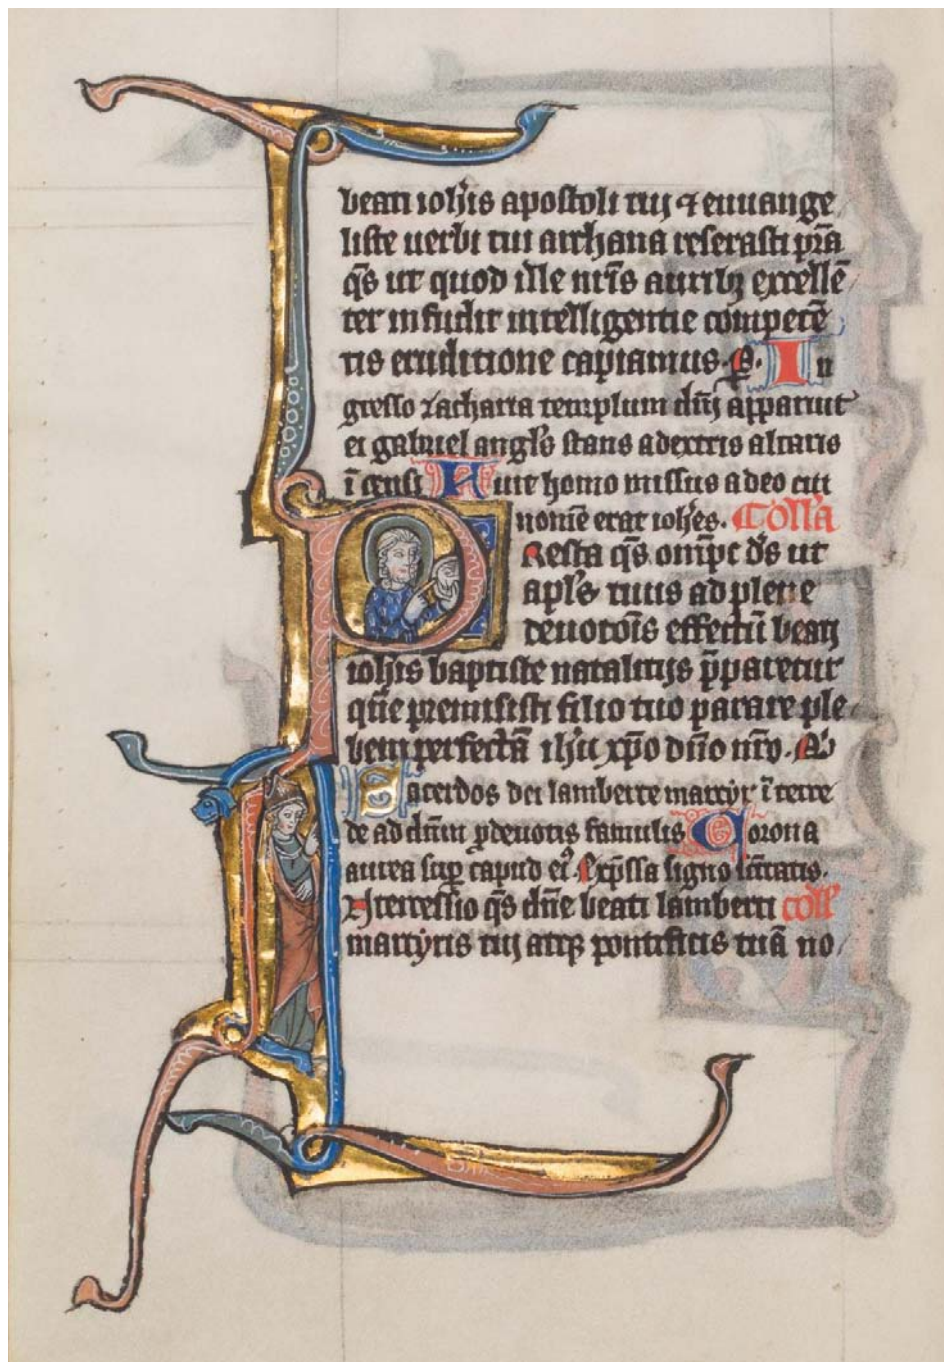 beati ioh̄is apostoli tuj ⁊ euuange
liste uerbi tui archana reserasti p̄ra
q̄s ut quod ille nr̄is auribꝫ excellē
ter infudit intelligentie competē
tis eruditione capiamus. In
gresso zacharia templum dn̄j apparuit
ei gabriel angl's stans adextris altaris
ī censi Fuit homo missus a deo cui
nomē erat ioh̄es. Coll'a
Resta q̄s om̄pc d's ut
apl's tuus ad plene
deuotōis effectū beatj
ioh̄is baptiste natalitijs p̄paretur
quē premisisti filio tuo parare ple
bem perfectā ih̄u xp̄o dn̄o nr̄o.
Sacerdos dei lamberte martyr ī terce
de ad dn̄m ꝓdeuotis famulis Corona
aurea suꝑ capud eiꝰ. Exp̄ssa signo sc̄itatis.
Ntercessio q̄s dn̄e beati lamberti coll'
martyris tuj atqꝫ pontificis tuā no